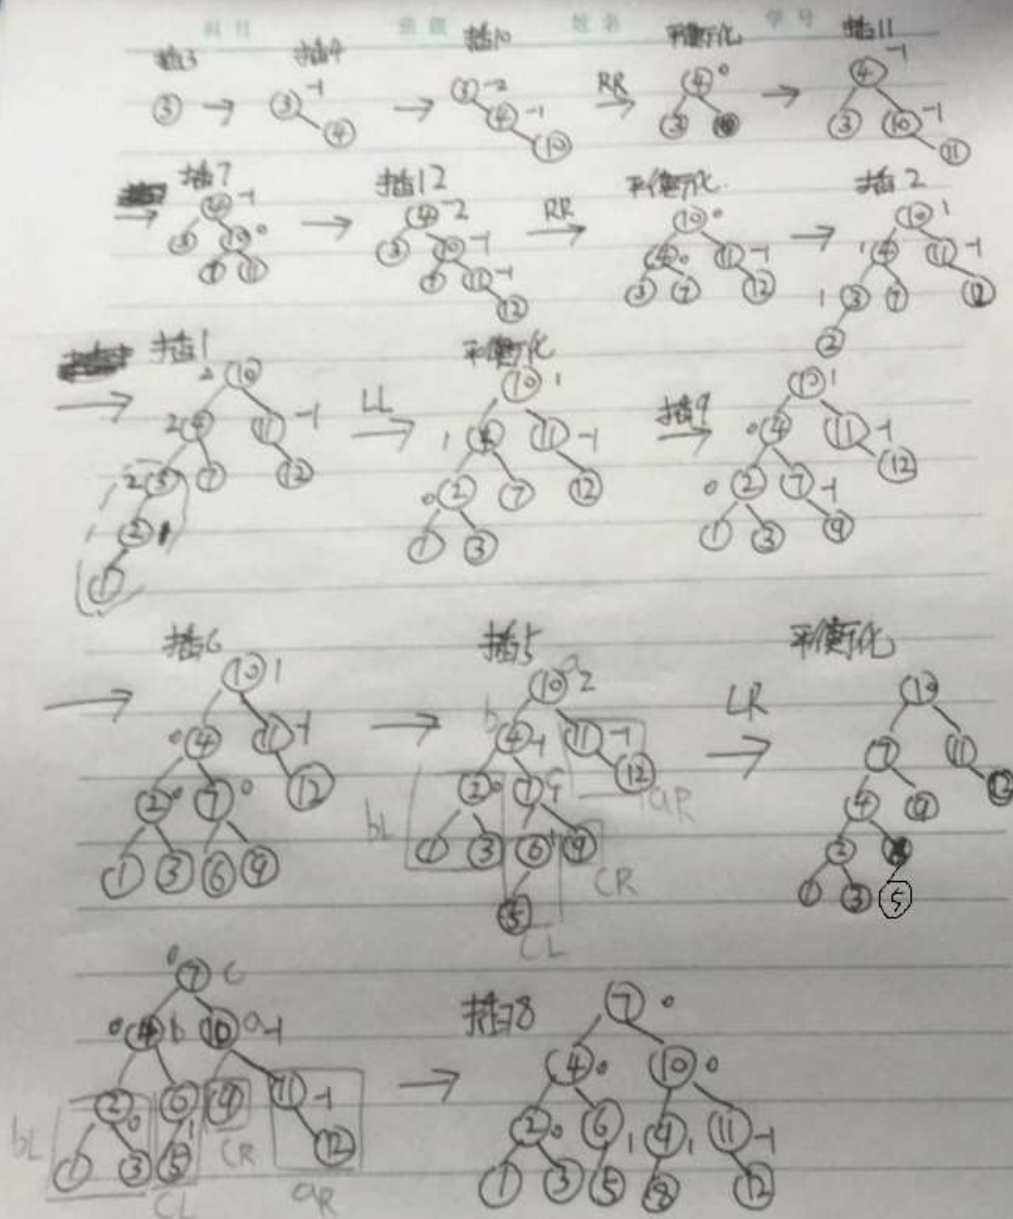 科目 班级 姓名 学号
插3 插4 插10 平衡化 插11
③ → ③ -1 ④ → ③ -2 ④ -1 ⑩ RR → ④ 0 ③ → ④ -1 ③ ⑩ -1 ⑪
插7 插12 平衡化 插2
→ ④ -1 ③ ⑩ 0 ⑦ ⑪ → ④ -2 ③ ⑩ -1 ⑦ ⑪ -1 ⑫ RR → ⑩ 0 ④ 0 ⑪ -1 ③ ⑦ ⑫ → ⑩ 1 1 ④ ⑪ -1 1 ③ ⑦ ⑫ ②
插1 平衡化 插9
→ 2 ⑩ 2 ④ ⑪ -1 2 ③ ⑦ ⑫ ② ① LL → ⑩ 1 1 ④ ⑪ -1 0 ② ⑦ ⑫ ① ③ → ⑩ 1 0 ④ ⑪ -1 ⑫ 0 ② ⑦ -1 ① ③ ⑨
插6 插5 平衡化
→ ⑩ 1 0 ④ ⑪ -1 ② 0 ⑦ 0 ⑫ ① ③ ⑥ ⑨ → ⑩ a 2 b ④ -1 ⑪ -1 ② 0 ⑦ ⑫ aR bL ① ③ ⑥ 1 ⑨ CR ⑤ CL LR → ⑩ ⑦ ⑪ ④ ⑨ ⑫ ② ① ③ ⑤
插8
0 ⑦ c 0 ④ b ⑩ a -1 ② 0 ⑥ 1 ⑨ ⑪ -1 bL ① ③ ⑤ CR ⑫ CL aR → ⑦ 0 ④ 0 ⑩ 0 ② 0 ⑥ 1 ⑨ 1 ⑪ -1 ① ③ ⑤ ⑧ ⑫